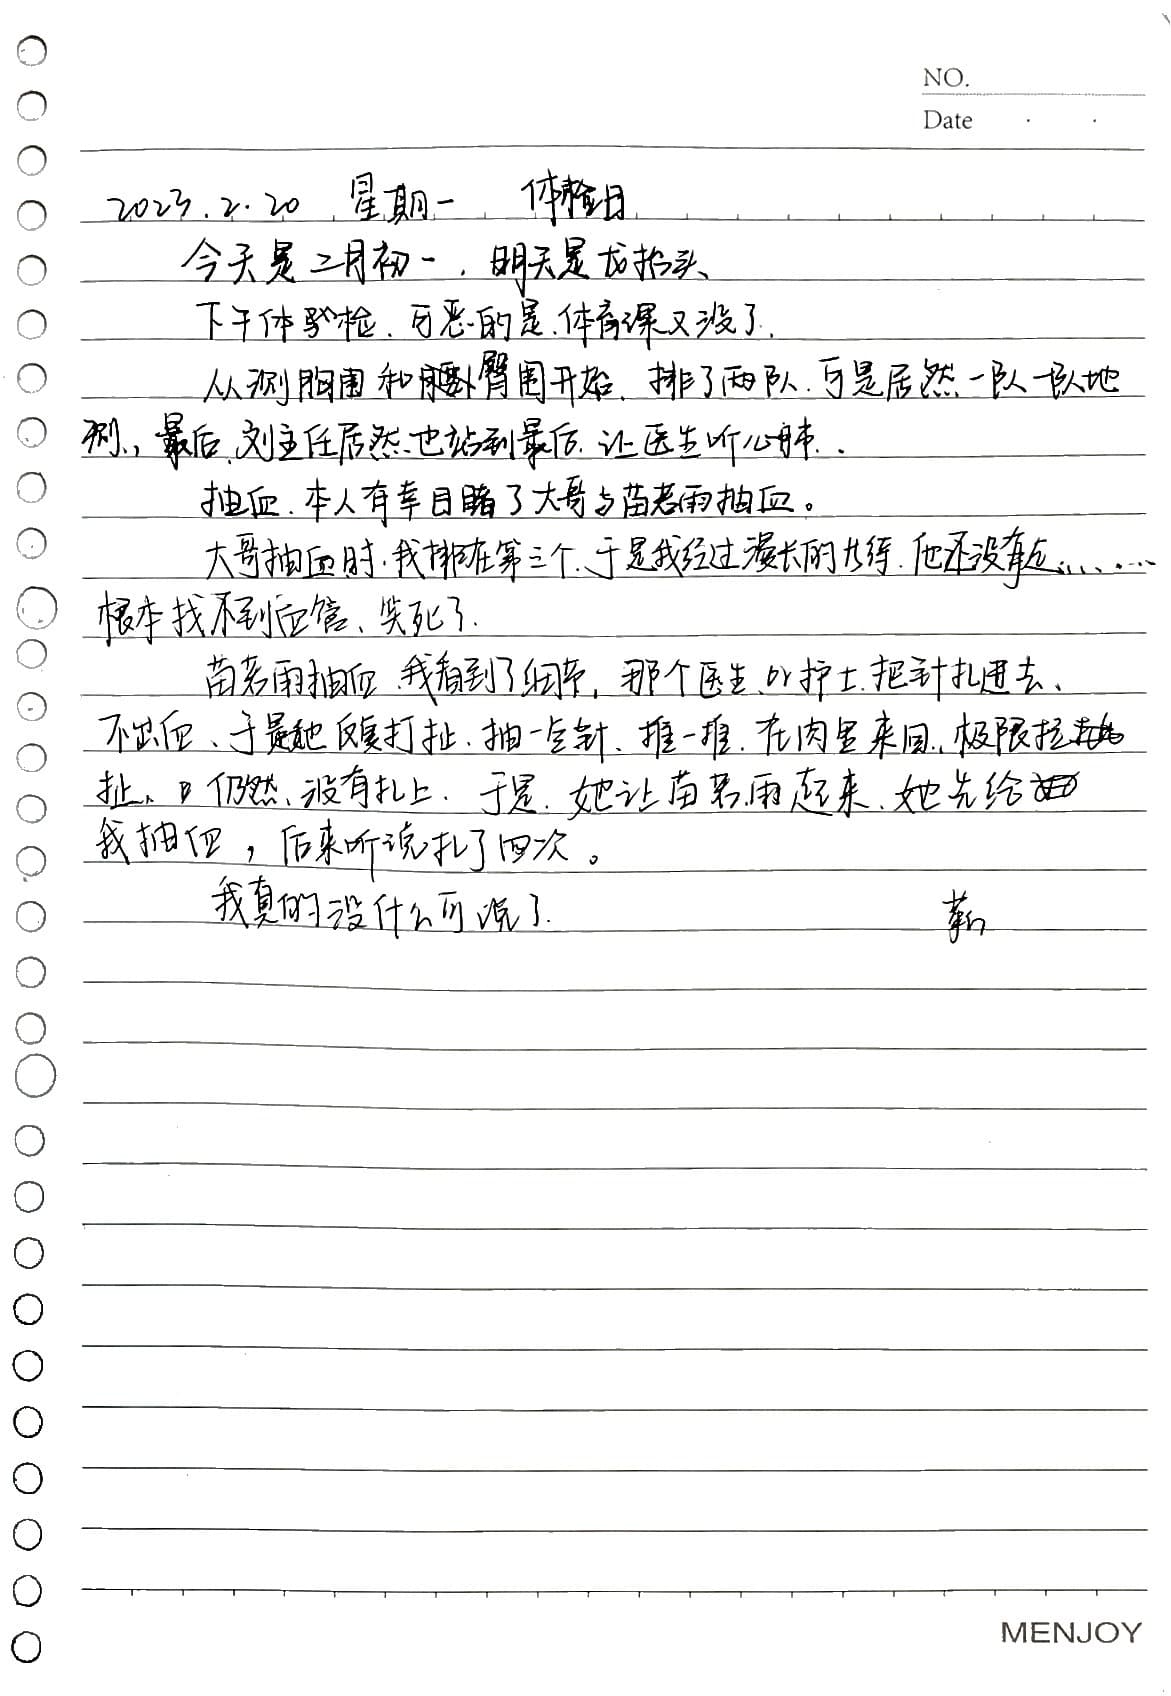 NO.
Date
2023.2.20 星期一 体检日
今天是二月初一,明天是龙抬头、
下午体检.可恶的是.体育课又没了.
从测胸围和臀围开始.排了两队.可是居然一队一队地
测.,最后.刘主任居然也站到最后.让医生听心肺.
抽血.本人有幸目睹了大哥与苗若雨抽血。
大哥抽血时.我排在第三个.于是我经过漫长的.他还没有......
根本找不到血管、笑死了.
苗若雨抽血.我看到了细节,那个医生or护士.把针扎进去、
不出血、于是她反复打扯.抽一点针、推一推.在肉里来回.极限拉
扯、仍然没有扎上.于是.她让苗若雨起来.她先给
我抽血,后来听说扎了四次。
我真的没什么可说了.
MENJOY